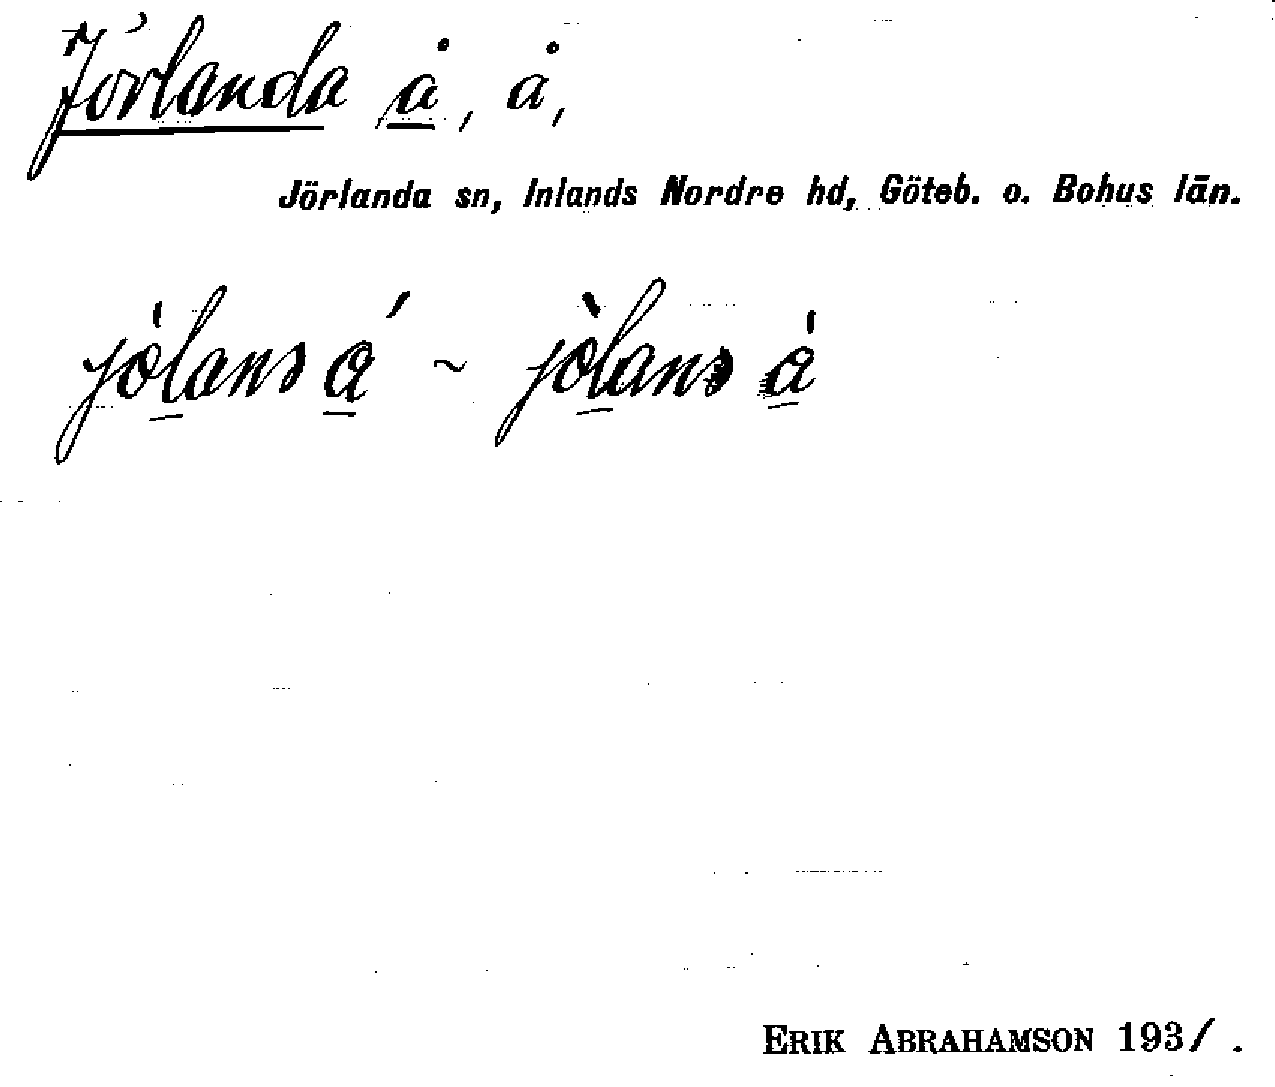 Jörlanda å, å,
Jörlanda sn, Inlands Nordre hd, Göteb. o. Bohus län.
jòlans á ~ jòlans à
ERIK ABRAHAMSON 1931.